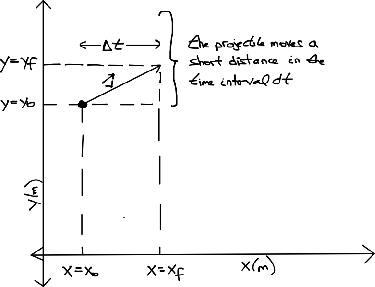 Δt
the projectile moves a
short distance in the
time interval dt
y=yf
y=y₀
y(m)
x=x₀
x=xf
x(m)